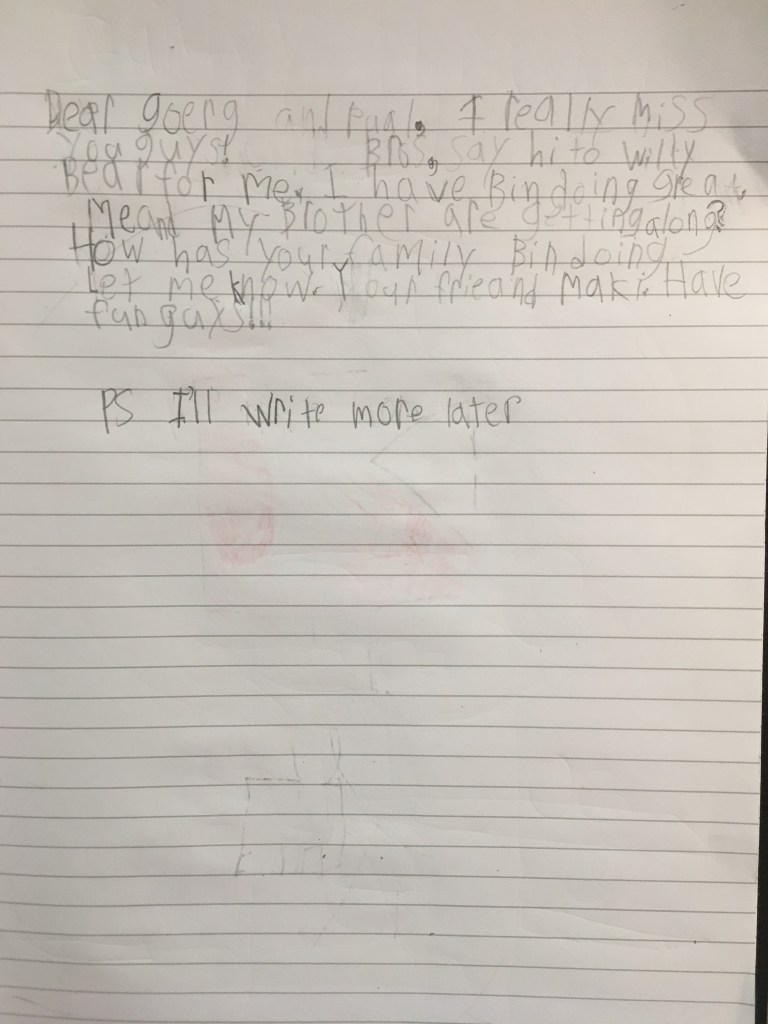 Dear goerg and pual, I really miss
you guys! Bros, say hi to Willy
Bear for me. I have Bin doing great.
Me and My Brother are getting along?
How has your family Bin doing
Let me know. Your frieand Maki. Have
fun guys!!!
PS I'll write more later